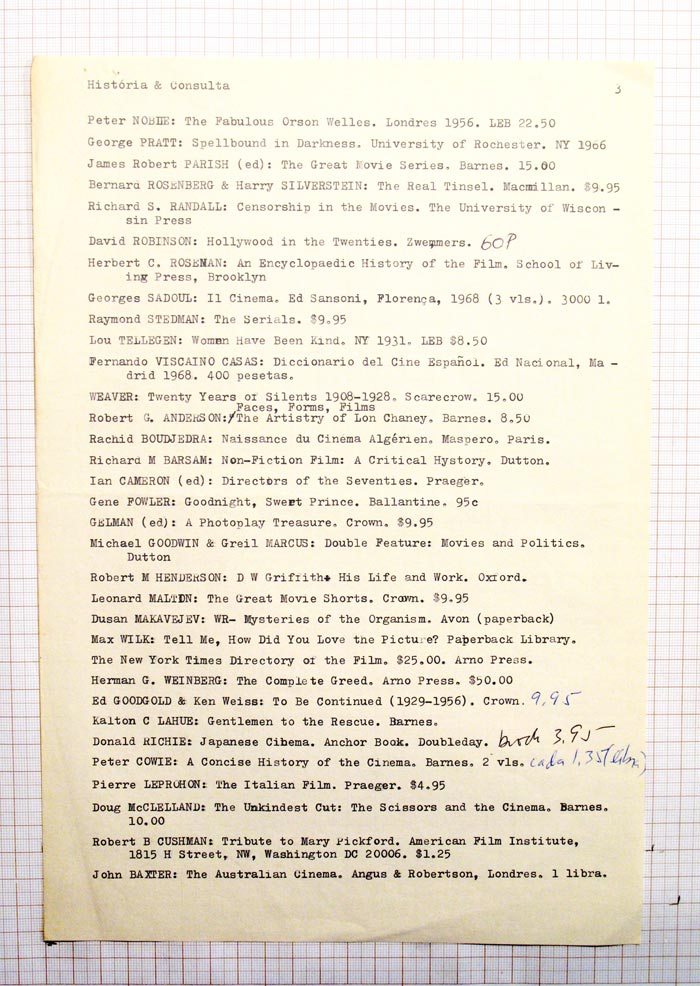 História & Consulta 3
Peter NOBLE: The Fabulous Orson Welles. Londres 1956. LEB 22.50
George PRATT: Spellbound in Darkness. University of Rochester. NY 1966
James Robert PARISH (ed): The Great Movie Series. Barnes. 15.00
Bernard ROSENBERG & Harry SILVERSTEIN: The Real Tinsel. Macmillan. $9.95
Richard S. RANDALL: Censorship in the Movies. The University of Wiscon -
sin Press
David ROBINSON: Hollywood in the Twenties. Zwemmers. 60P
Herbert C. ROSEMAN: An Encyclopaedic History of the Film. School of Liv-
ing Press, Brooklyn
Georges SADOUL: Il Cinema. Ed Sansoni, Florença, 1968 (3 vls.). 3000 l.
Raymond STEDMAN: The Serials. $9.95
Lou TELLEGEN: Women Have Been Kind. NY 1931. LEB $8.50
Fernando VISCAINO CASAS: Diccionario del Cine Español. Ed Nacional, Ma -
drid 1968. 400 pesetas.
WEAVER: Twenty Years of Silents 1908-1928. Scarecrow. 15.00
Faces, Forms, Films
Robert G. ANDERSON:/The Artistry of Lon Chaney. Barnes. 8.50
Rachid BOUDJEDRA: Naissance du Cinema Algérien. Maspero. Paris.
Richard M BARSAM: Non-Fiction Film: A Critical Hystory. Dutton.
Ian CAMERON (ed): Directors of the Seventies. Praeger.
Gene FOWLER: Goodnight, Sweet Prince. Ballantine. 95c
GELMAN (ed): A Photoplay Treasure. Crown. $9.95
Michael GOODWIN & Greil MARCUS: Double Feature: Movies and Politics.
Dutton
Robert M HENDERSON: D W Griffith: His Life and Work. Oxford.
Leonard MALTIN: The Great Movie Shorts. Crown. $9.95
Dusan MAKAVEJEV: WR- Mysteries of the Organism. Avon (paperback)
Max WILK: Tell Me, How Did You Love the Picture? Paperback Library.
The New York Times Directory of the Film. $25.00. Arno Press.
Herman G. WEINBERG: The Complete Greed. Arno Press. $50.00
Ed GOODGOLD & Ken Weiss: To Be Continued (1929-1956). Crown. 9,95
Kalton C LAHUE: Gentlemen to the Rescue. Barnes.
Donald RICHIE: Japanese Cinema. Anchor Book. Doubleday. 3,95
Peter COWIE: A Concise History of the Cinema. Barnes. 2 vls. cada 1,35 (libra)
Pierre LEPROHON: The Italian Film. Praeger. $4.95
Doug McCLELLAND: The Unkindest Cut: The Scissors and the Cinema. Barnes.
10.00
Robert B CUSHMAN: Tribute to Mary Pickford. American Film Institute,
1815 H Street, NW, Washington DC 20006. $1.25
John BAXTER: The Australian Cinema. Angus & Robertson, Londres. 1 libra.